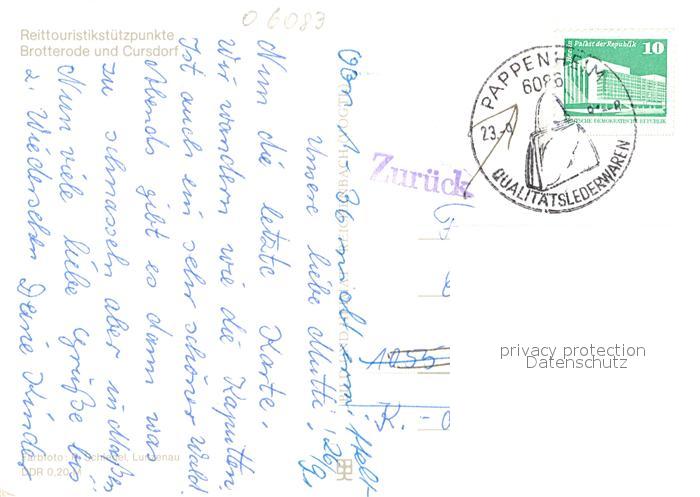 06083
Reittouristikstützpunkte
Brotterode und Cursdorf
Unsere liebe Mutti! 26/9.
Nun die letzte Karte.
Wir wandern wie die Kaputten.
Ist auch ein sehr schöner Wald.
Abends gibt es dann was
zu schmaseln aber in Maßen
Nun viele liebe Grüße bis
z. Wiedersehen Deine Kinder
Zurück
PAPPENHEIM
6086
23.-9
QUALITÄTSLEDERWAREN
Berlin Palast der Republik
10
DEUTSCHE DEMOKRATISCHE REPUBLIK
1055
K. -
privacy protection
Datenschutz
Lunzenau
DDR 0,20 M